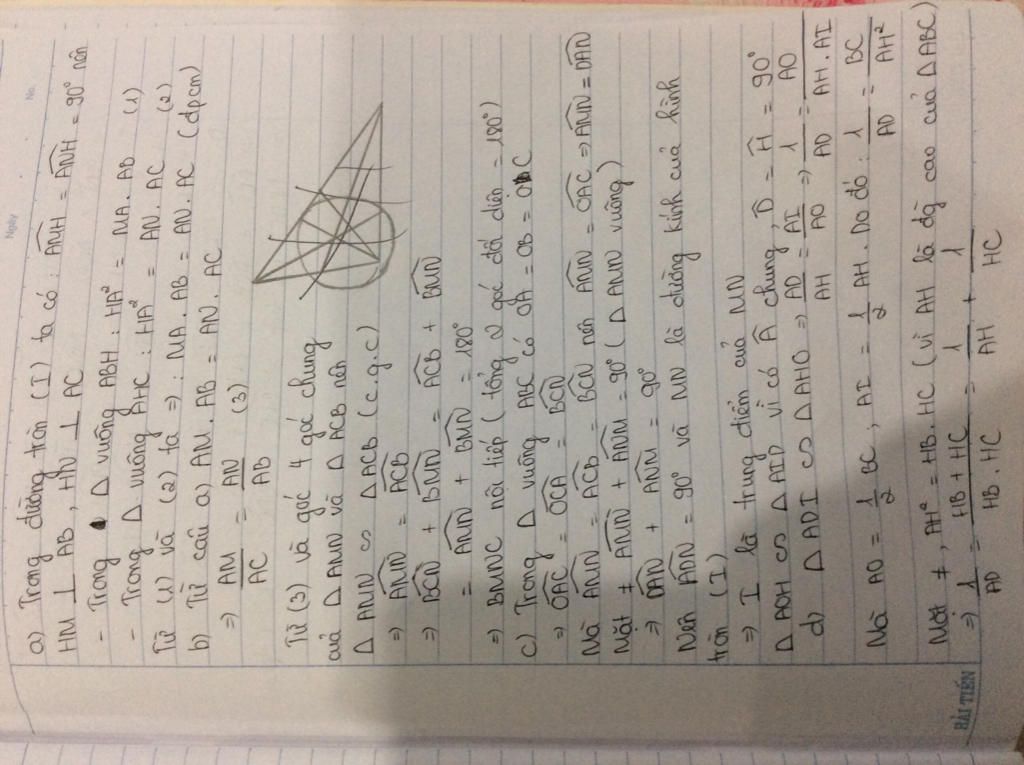 Ngày
No.
a) Trong đường tròn (I) ta có : ANH = ANH = 90° nên
HM ⊥ AB, HN ⊥ AC
- Trong Δ vuông ABH : HA² = MA . AB (1)
- Trong Δ vuông AHC : HA² = AN . AC (2)
Từ (1) và (2) ta ⇒ : MA . AB = AN . AC (đpcm)
b) Từ câu a) AM . AB = AN . AC
⇒ AM/AC = AN/AB (3)
Từ (3) và góc A góc chung
của Δ AMN và Δ ACB nên
Δ AMN ∽ Δ ACB (c.g.c)
⇒ AMN = ACB
⇒ BCN + BMN = ACB + BMN
= AMN + BMN = 180°
⇒ BMNC nội tiếp (tổng 2 góc đối diện = 180°)
c) Trong Δ vuông ABC có OA = OB = OC
⇒ OAC = OCA = BCN
Mà AMN = ACB = BCN nên AMN = OAC ⇒ AMN = DAN
Mặt ≠ AMN + ANM = 90° (Δ AMN vuông)
⇒ DAN + ANM = 90°
Nên ADN = 90° và MN là đường kính của hình
tròn (I)
⇒ I là trung điểm của MN
Δ AOH ∽ Δ AID vì có A chung, D = H = 90°
d) Δ ADI ∽ Δ AHO ⇒ AD/AH = AI/AO ⇒ 1/AD = AO/AH . AI
Mà AO = 1/2 BC, AI = 1/2 AH. Do đó : 1/AD = BC/AH²
Mặt ≠, AH² = HB . HC (vì AH là độ cao của Δ ABC)
⇒ 1/AD = HB + HC/HB . HC = 1/AH + 1/HC
HẢI TIẾN